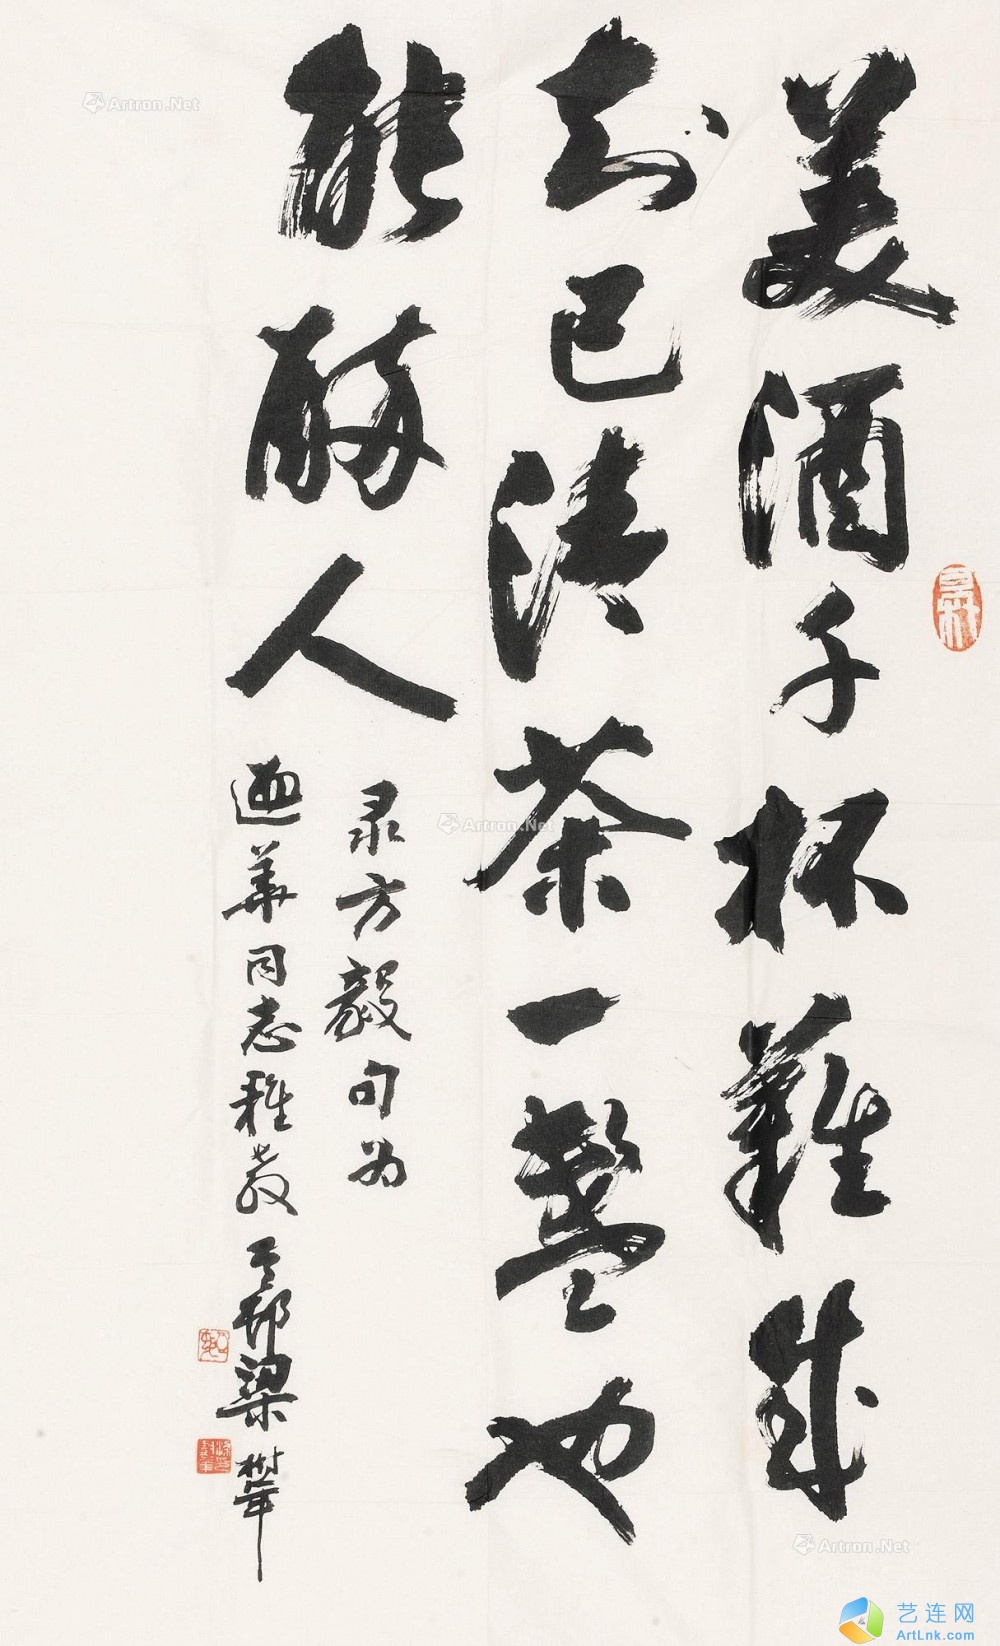 美酒千杯難成
知已清茶一盞也
能醉人
录方毅句为
迺華同志雅教 豆邨梁樹年
Artron.Net
Artron.Net
Artron.Net
艺连网
ArtLnk.com